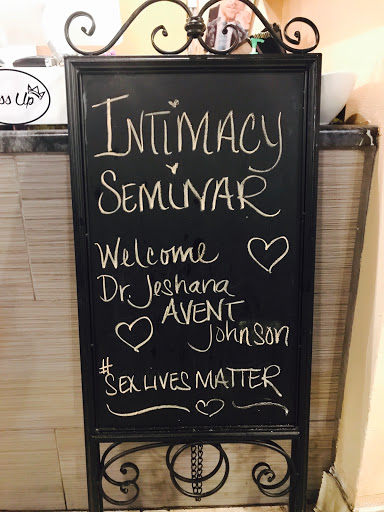 ss Up
INTIMACY
SEMINAR
Welcome
Dr. Jeshana
AVENT
Johnson
#SEX LIVES MATTER